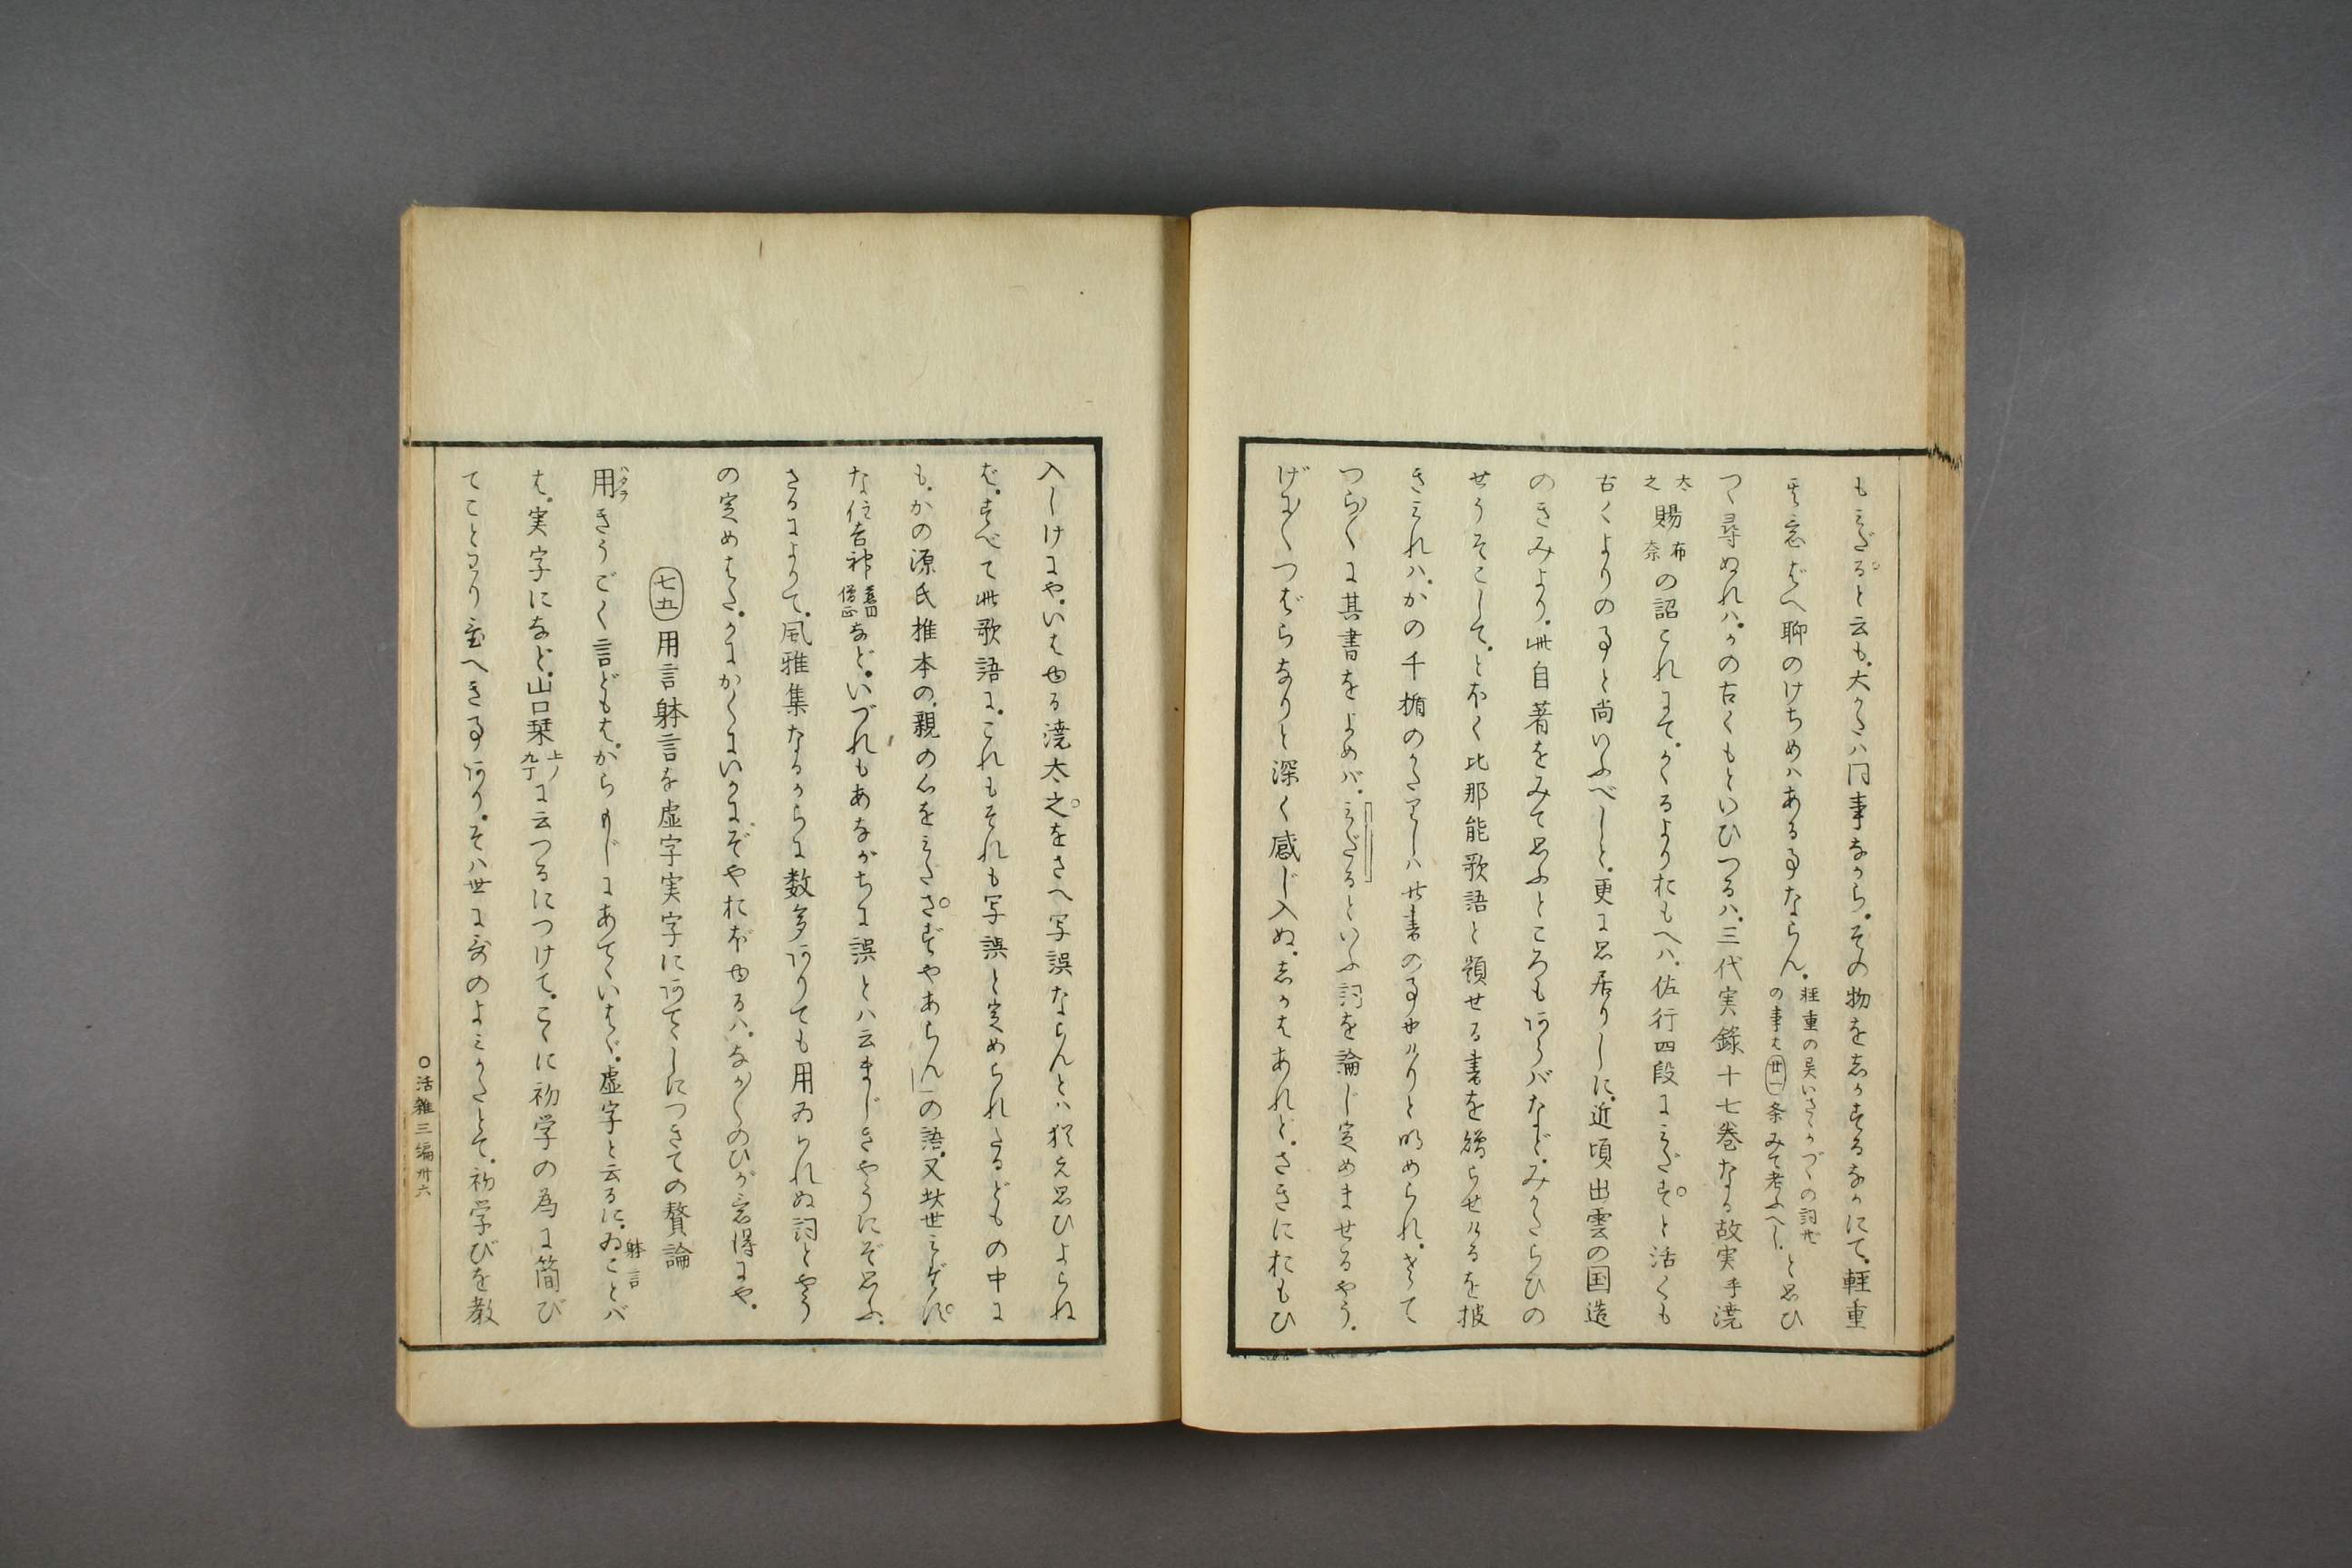 もみだると云も、大かたハ同事ながら、その物を志かするなかにて、軽重
其意ばへ聊のけちめハある事ならん、軽重の異いさゝかづゝの詞也の事は廿一条みて考ふへし、と思ひ
つゝ尋ぬれハ、かの古くもといひつるハ、三代実録十七巻なる故実乎澆
太之賜布奈の詔これにて、かゝるよりおもへハ、佐行四段にみだすと活くも
古くよりの事と尚いふべしと、更に思居りしに、近頃出雲の国造
のきみより、此自著をみて思ふところもあらバなど、みかたらひの
せうそこして、とほく比那能歌語と領せる書を贈らせけるを披
きみれハ、かの千楯のかたりしハ此書の事也けりと明められ、さて
つら〱に其書をよめバ、みだるといふ詞を論じ定めませるやう、
げに〱つばらなりと深く感じ入ぬ、志かはあれど、さきにおもひ
入しけにや、いはゆる澆太之をさへ写誤ならんとハ猶え思ひよらね
ば、すべて此歌語に、これもそれも写誤と定められたるどもの中に
も、かの源氏椎本の、親の心をみださずやあらんの語、又拔世みださず
な住吉神慕田僧正など、いづれもあながちに誤とハ云まじきやうにぞ思ふ、
さるによりて、風雅集なるからに数多ありても用ゐられぬ詞とやう
の定めはた、かにかくにいかにぞやおぼゆるハ、なか〱のひが意得にや、
七五 用言躰言を虚字実字にあてしにつきての贅論
用きうごく言どもは、からもじにあてゝいはゞ、虚字と云るに、ゐことバ躰言
は、実字になど、山口栞上ノ九丁に云つるにつけて、こゝに初学の為に簡び
てことわり置へき事あり、そハ世に歌のよみかたとて、初学びを教
○活雑三編卅六